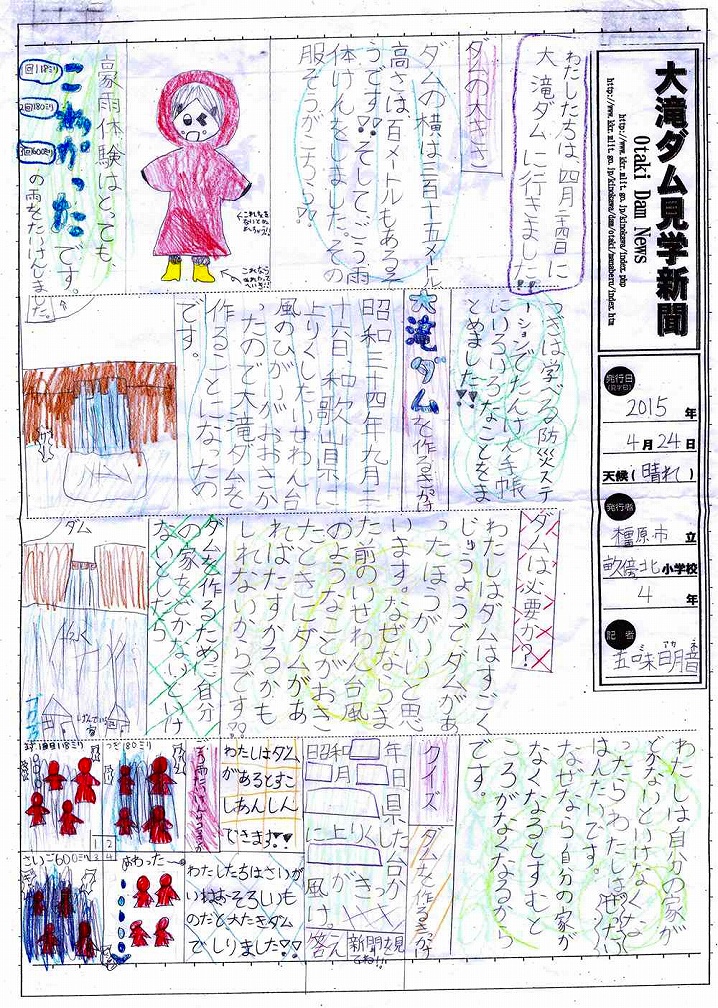 大滝ダム見学新聞
Otaki Dam News
http://www.kkr.mlit.go.jp/kinokawa/index.php
発行日
2015年
4月24日
天候(晴れ)
発行者
橿原市立
畝傍北小学校
4年
記者
五味明音
わたしたちは、四月二十四日に
大滝ダムに行きました
ダムの大きさ
ダムの横は三百十五メートル
高さは、百メートルもあるそ
うです!!そして、ごう雨
体けんをしました。その
服そうがこちら!!
豪雨体験はとっても、
こわかったです。
1回118ミリ
2回180ミリ
3回600ミリ
の雨をたいけんしました。
つぎは学べる防災ステ
ーションでたんけん手帳
にいろいろなことをま
とめました!!
大滝ダムを作るきっかけ
昭和三十四年九月二
十六日和歌山県に
上りくしたいせわん台
風のひがいがおおきか
ったので大滝ダムを
作ることになったの
です。
ダムは必要か?
わたしはダムはすごく
じゅうようでダムがあ
ったほうがいいと思
います。なぜならま
た前のいせわん台風
のようなことがおき
たときにダムがあ
ればたすかるかも
しれないからです!!
ダムを作るために自分
の家をどかないといけ
ないとしたら
ダム
わたしは自分の家が
どかないといけなくな
ったらわたしはぜったい
はんたいです。
なぜなら自分の家が
なくなるとすむと
ころがなくなるから
です。
クイズ
ダムを作るきっかけ
昭和 年
月 日
県
に上りくした台
風
がきっか
け。
答え
新聞を見
てね!!
わたしはダム
があるとすご
くあんしん
できます!!
ごう雨たいけんのようす
まず1回目118ミリ
つぎ180ミリ
さいご600ミリ
おわった〜
1
2
3
4
わたしたちはさいが
いはおそろしいも
のだと大たきダム
でしりました!!